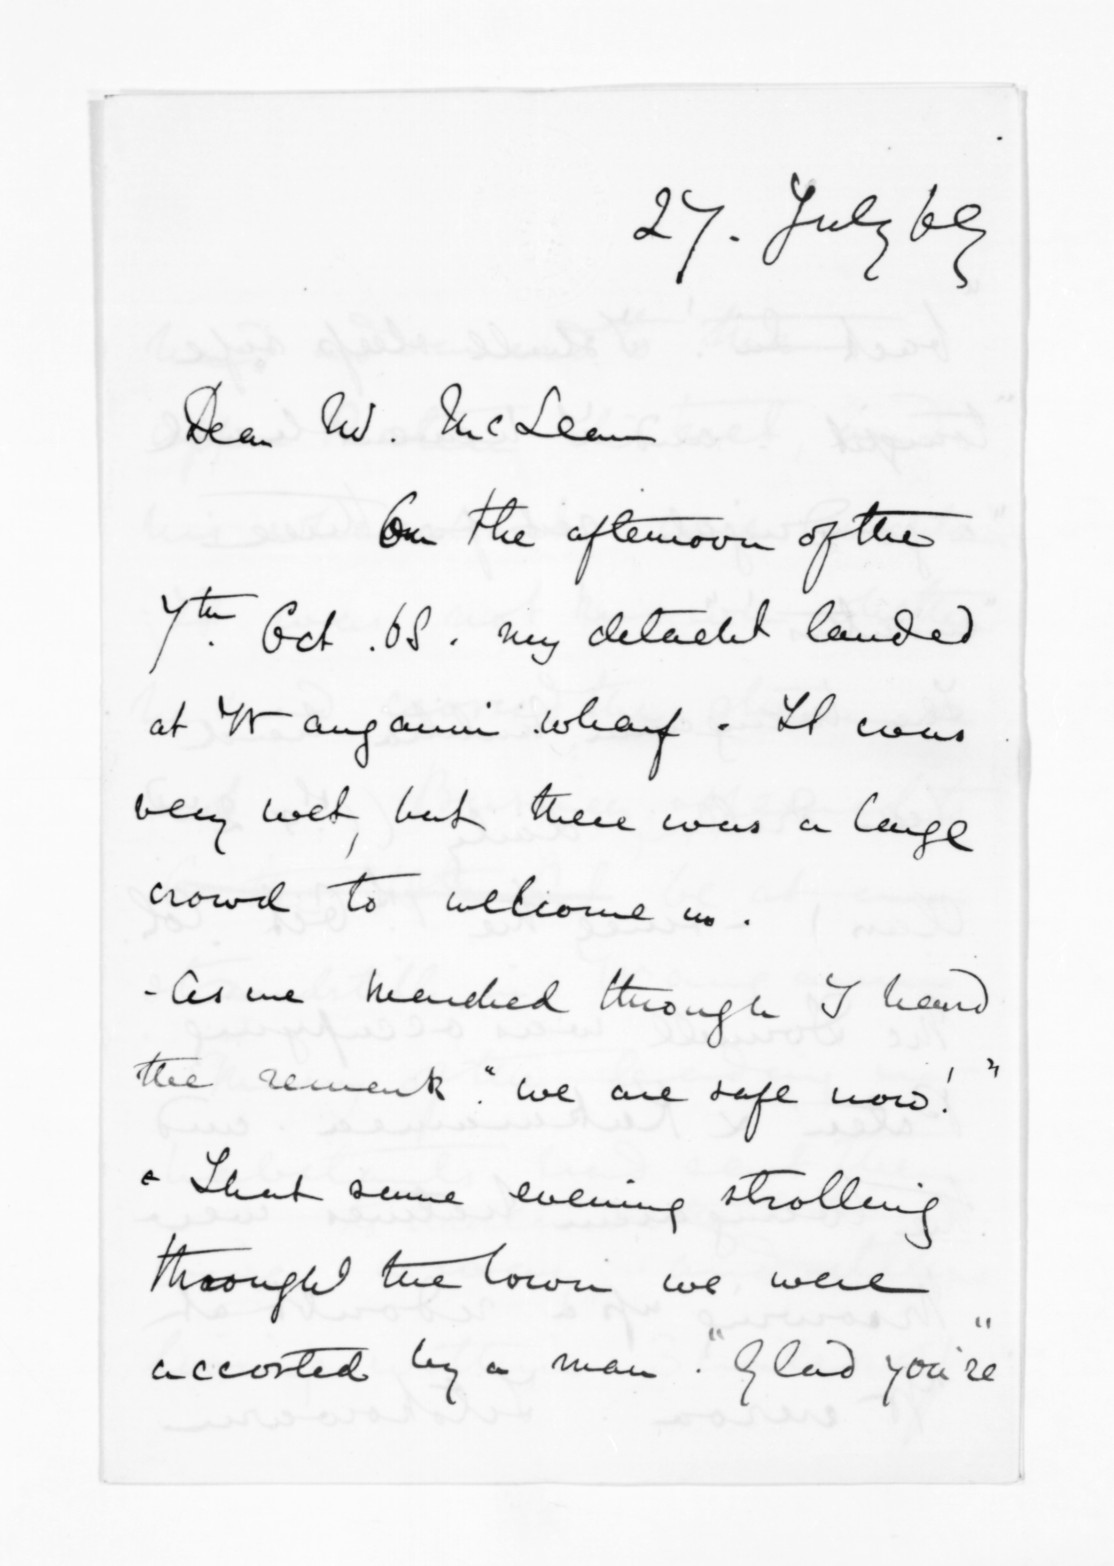 27. July 69
Dear Mr. McLean
On the afternoon of the
7th. Oct. 68. my detacht landed
at Wanganui wharf. It was
very wet, but there was a large
crowd to welcome us.
- As we marched through I heard
the remark "we are safe now!"
- That same evening strolling
through the town we were
accosted by a man. "Glad you're"